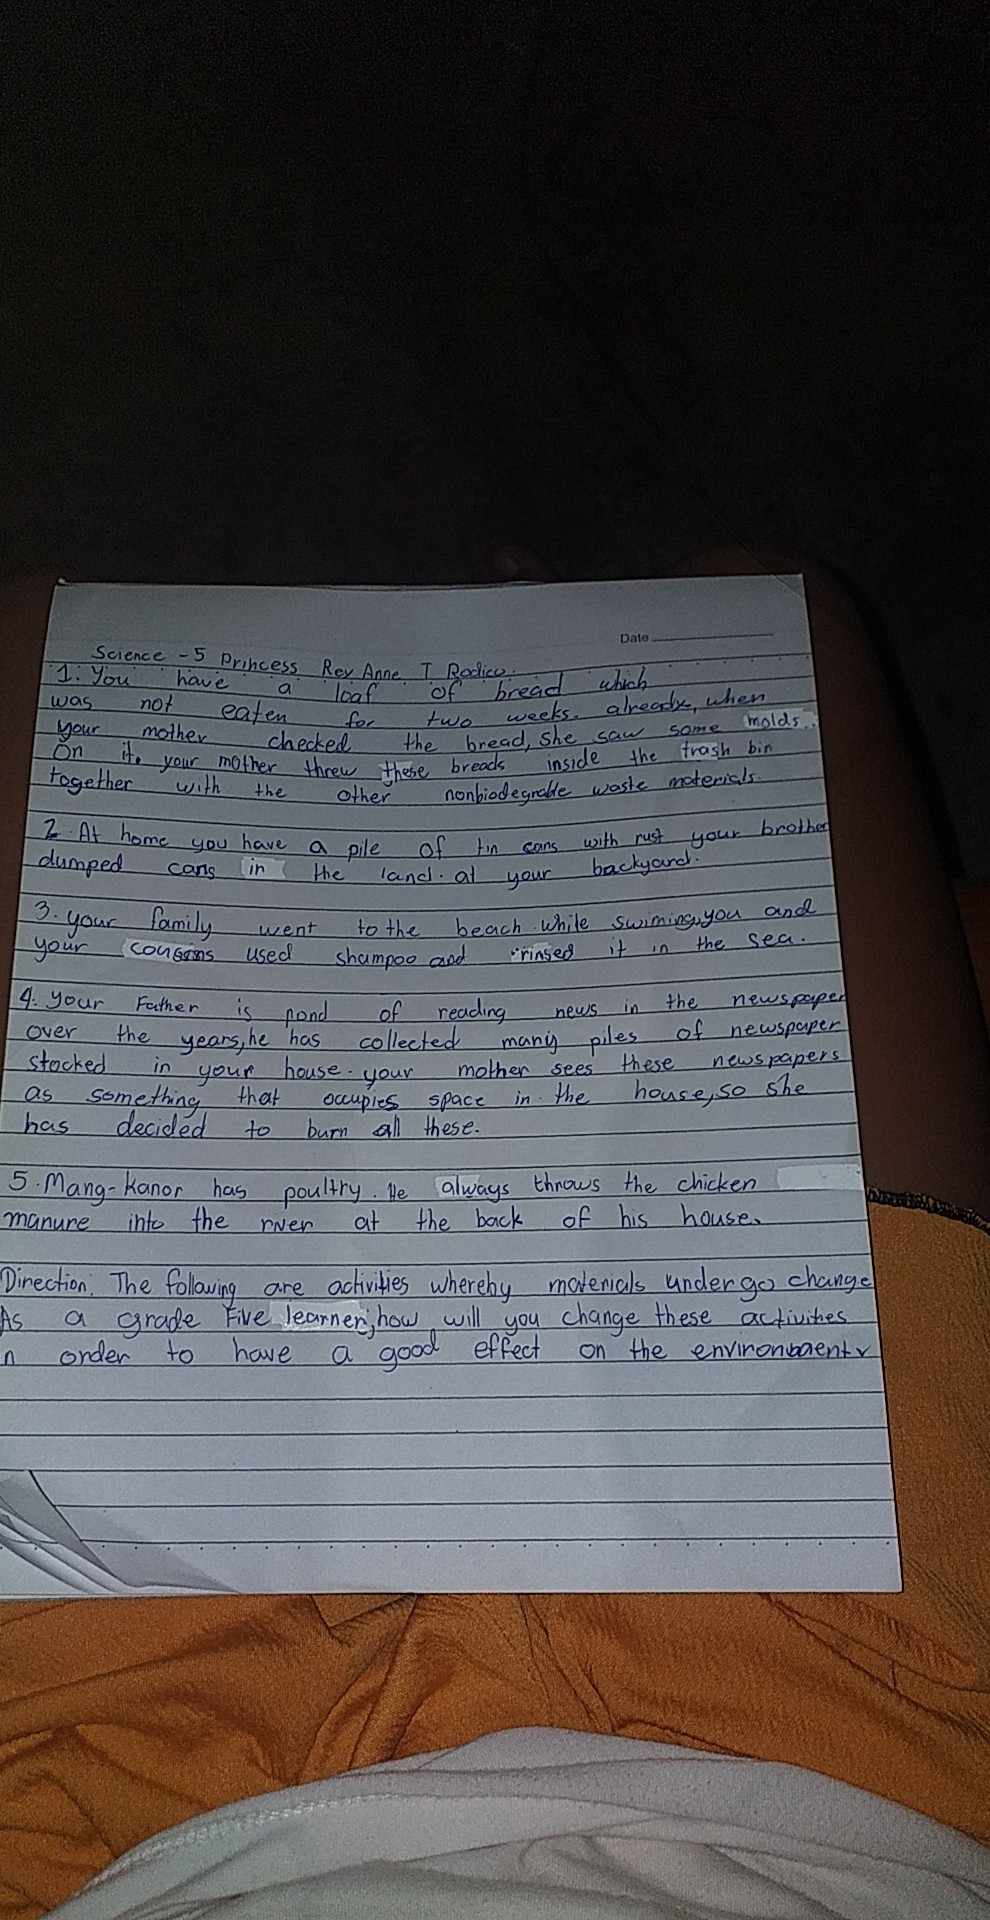 Date
Science - 5 Princess Rey Anne T Rodico.
1. You have a loaf of bread which
was not eaten for two weeks. already, when
your mother checked the bread, she saw some molds.
On it. your mother threw these breads inside the trash bin
together with the other nonbiodegrable waste materials.
2. At home you have a pile of tin cans with rust your brother
dumped cans in the land. at your backyard.
3. your family went to the beach. while swiming, you and
your cousins used shampoo and rinsed it in the sea.
4. your Father is pond of reading news in the newspaper
over the years, he has collected many piles of newspaper
stocked in your house. your mother sees these newspapers
as something that occupies space in the house, so she
has decided to burn all these.
5. Mang-Kanor has poultry. He always throws the chicken
manure into the river at the back of his house.
Direction: The following are activities whereby materials undergo change
As a grade Five learner, how will you change these activities
n order to have a good effect on the environment